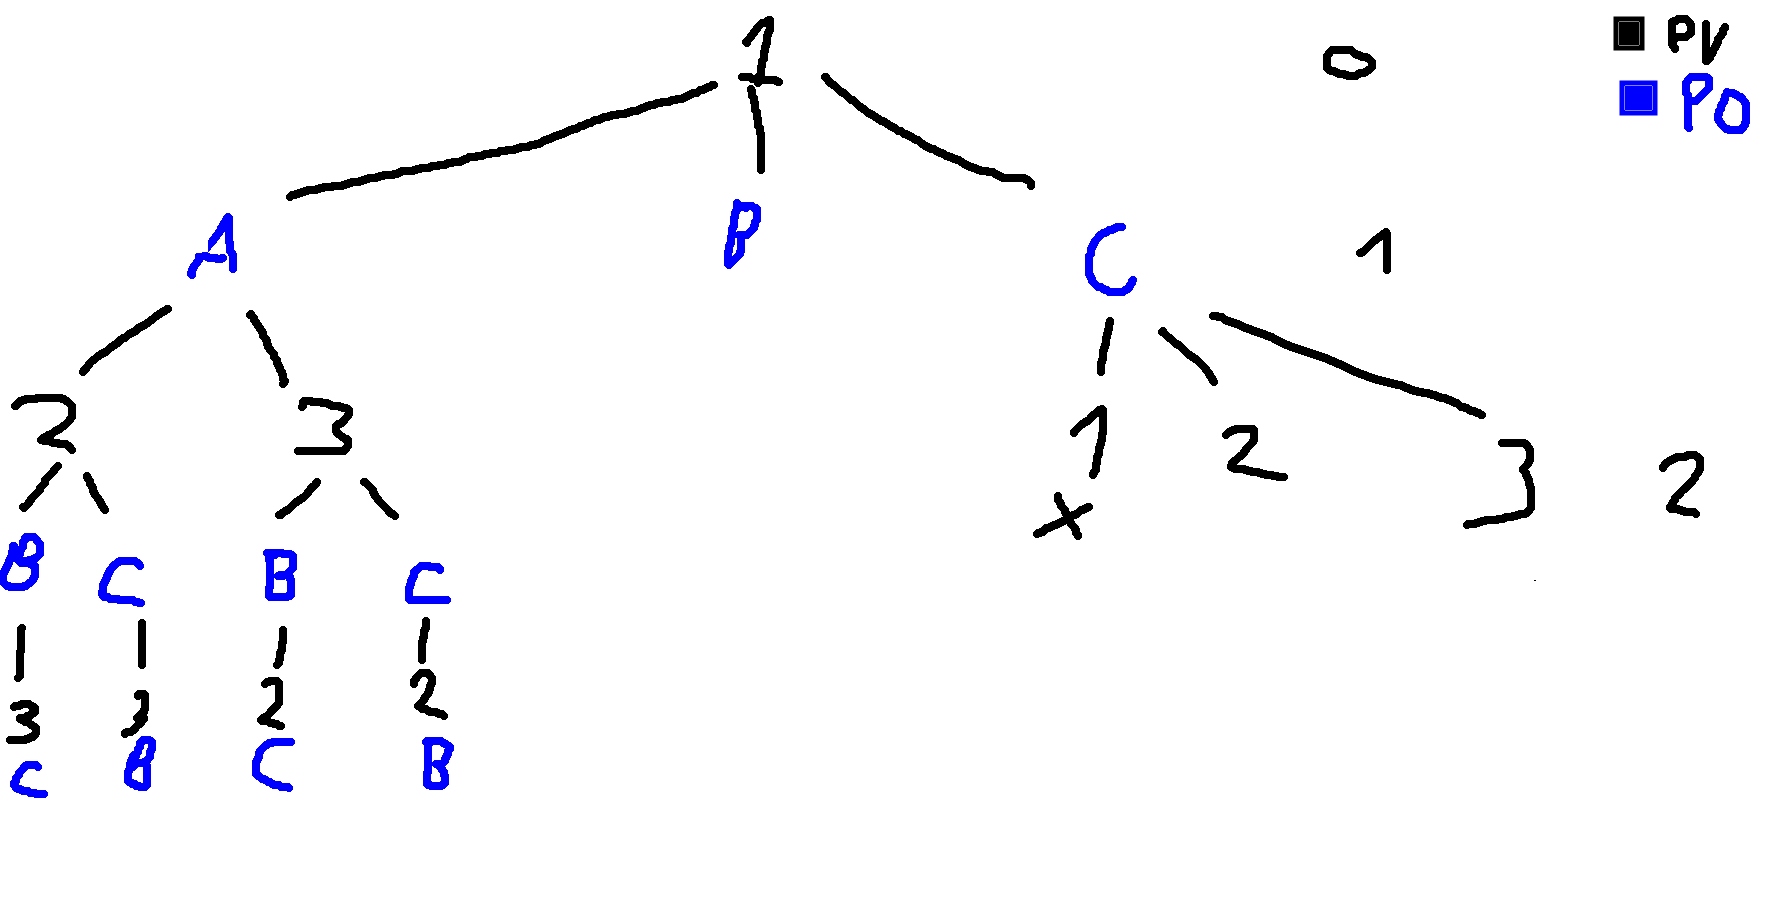 1 0 PV
PO
A B C 1
2 3 1 2 3 2
x
B C B C
3 3 2 2
C B C B